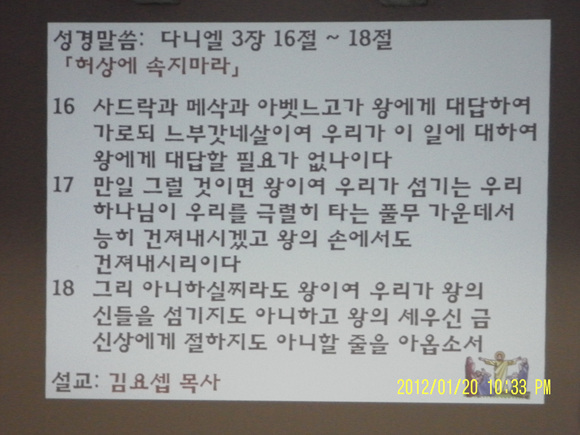 성경말씀: 다니엘 3장 16절 ~ 18절
「허상에 속지마라」
16 사드락과 메삭과 아벳느고가 왕에게 대답하여
가로되 느부갓네살이여 우리가 이 일에 대하여
왕에게 대답할 필요가 없나이다
17 만일 그럴 것이면 왕이여 우리가 섬기는 우리
하나님이 우리를 극렬히 타는 풀무 가운데서
능히 건져내시겠고 왕의 손에서도
건져내시리이다
18 그리 아니하실찌라도 왕이여 우리가 왕의
신들을 섬기지도 아니하고 왕의 세우신 금
신상에게 절하지도 아니할 줄을 아옵소서
설교: 김요셉 목사
2012/01/20 10:33 PM